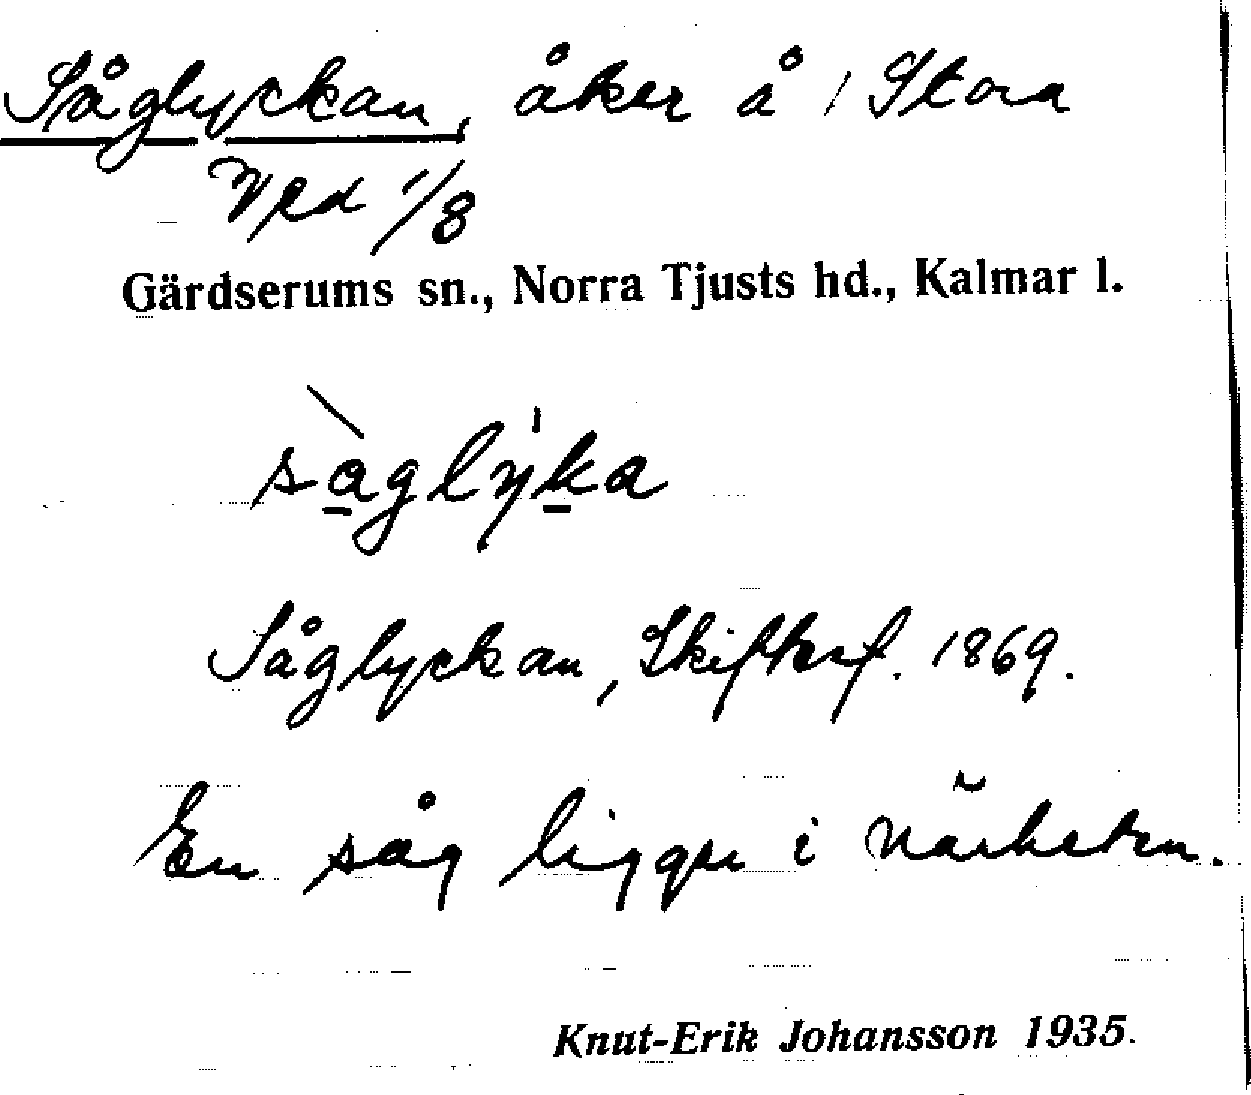 Såglyckan, åker å 1 Stora
Vrd 1/8
Gärdserums sn., Norra Tjusts hd., Kalmar l.
såglyka
Såglyckan, Skifteсf. 1869.
En såg ligger i närheten.
Knut-Erik Johansson 1935.